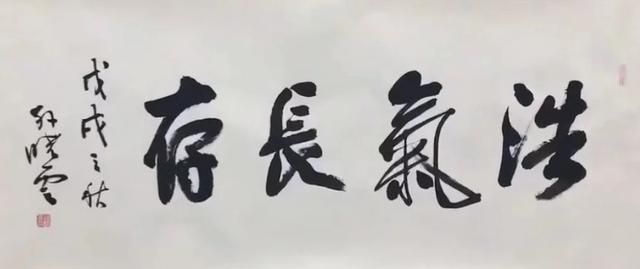 浩氣長存
戊戌之秋
孙晓雲